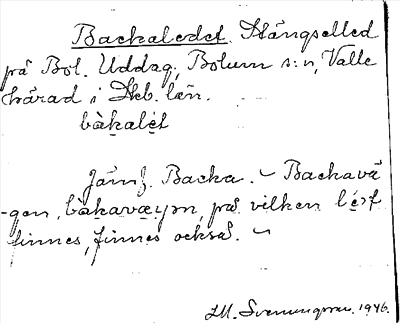 Backaledet. Stängselled
på Bol. Uddag; Bolum s:n, Valle
härad i Skb. län.
bàkalèt
Jämf. Backa. ~ Backavä
-gen, bàkavæyən, på vilken
finnes, finnes också. ~
M. Svenungsson. 1946.